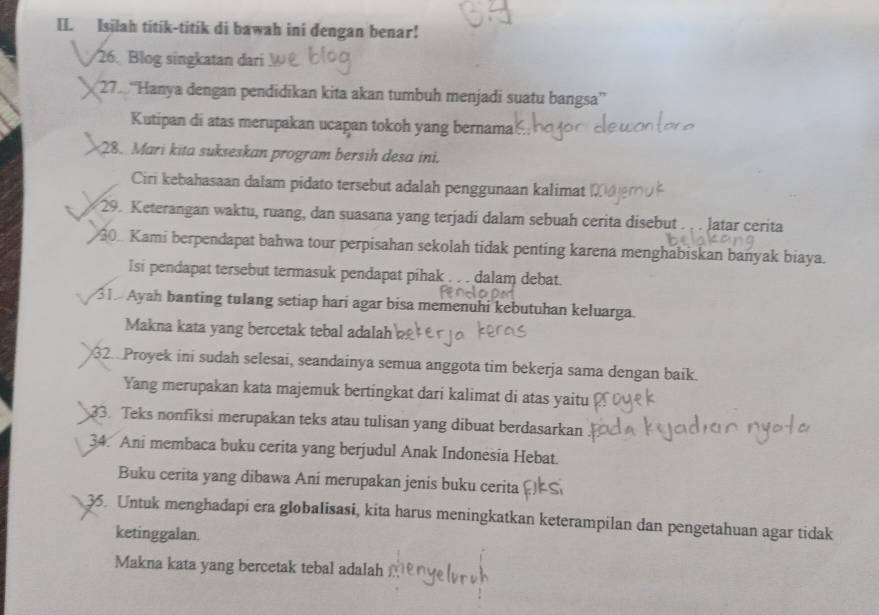 II. Isilah titik-titik di bawah ini dengan benar!
26. Blog singkatan dari we blog
27. "Hanya dengan pendidikan kita akan tumbuh menjadi suatu bangsa"
Kutipan di atas merupakan ucapan tokoh yang bernama k. hajar dewantara
28. Mari kita sukseskan program bersih desa ini.
Ciri kebahasaan dalam pidato tersebut adalah penggunaan kalimat majemuk
29. Keterangan waktu, ruang, dan suasana yang terjadi dalam sebuah cerita disebut . . . latar cerita
belakang
30. Kami berpendapat bahwa tour perpisahan sekolah tidak penting karena menghabiskan banyak biaya.
Isi pendapat tersebut termasuk pendapat pihak . . . dalam debat.
Pendapat
31. Ayah banting tulang setiap hari agar bisa memenuhi kebutuhan keluarga.
Makna kata yang bercetak tebal adalah bekerja keras
32. Proyek ini sudah selesai, seandainya semua anggota tim bekerja sama dengan baik.
Yang merupakan kata majemuk bertingkat dari kalimat di atas yaitu proyek
33. Teks nonfiksi merupakan teks atau tulisan yang dibuat berdasarkan pada kejadian nyata
34. Ani membaca buku cerita yang berjudul Anak Indonesia Hebat.
Buku cerita yang dibawa Ani merupakan jenis buku cerita fiksi
35. Untuk menghadapi era globalisasi, kita harus meningkatkan keterampilan dan pengetahuan agar tidak
ketinggalan.
Makna kata yang bercetak tebal adalah menyeluruh